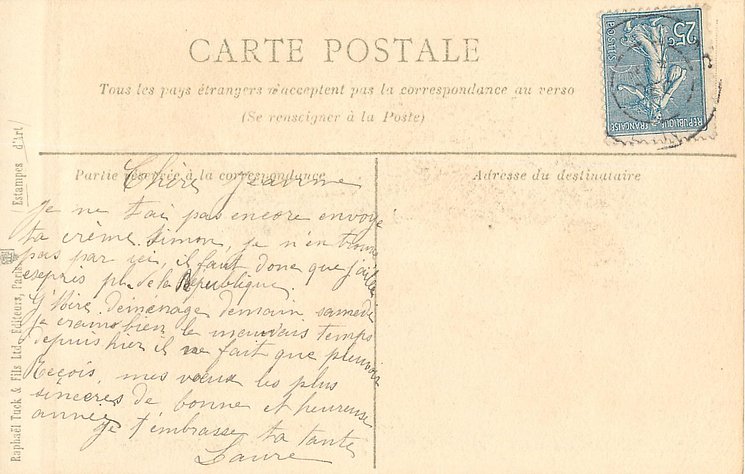 CARTE POSTALE
Tous les pays étrangers n'acceptent pas la correspondance au verso
(Se renseigner à la Poste)
25c
POSTES
REPUBLIQUE FRANÇAISE
Partie réservée à la correspondance
Adresse du destinataire
Chère Jeanne
Je ne t'ai pas encore envoyé
ta crème Simon, je n'en trouve
pas par ici, il faut donc que j'aille
exprès pl. de la République.
déménage demain samedi
je crains bien le mauvais temps
depuis hier il ne fait que pleuvoir
Reçois, mes vœux les plus
sincères de bonne et heureuse
année
Je t'embrasse ta tante
Laure
Raphaël Tuck & Fils Ltd., Editeurs, Paris
Estampes d'Art